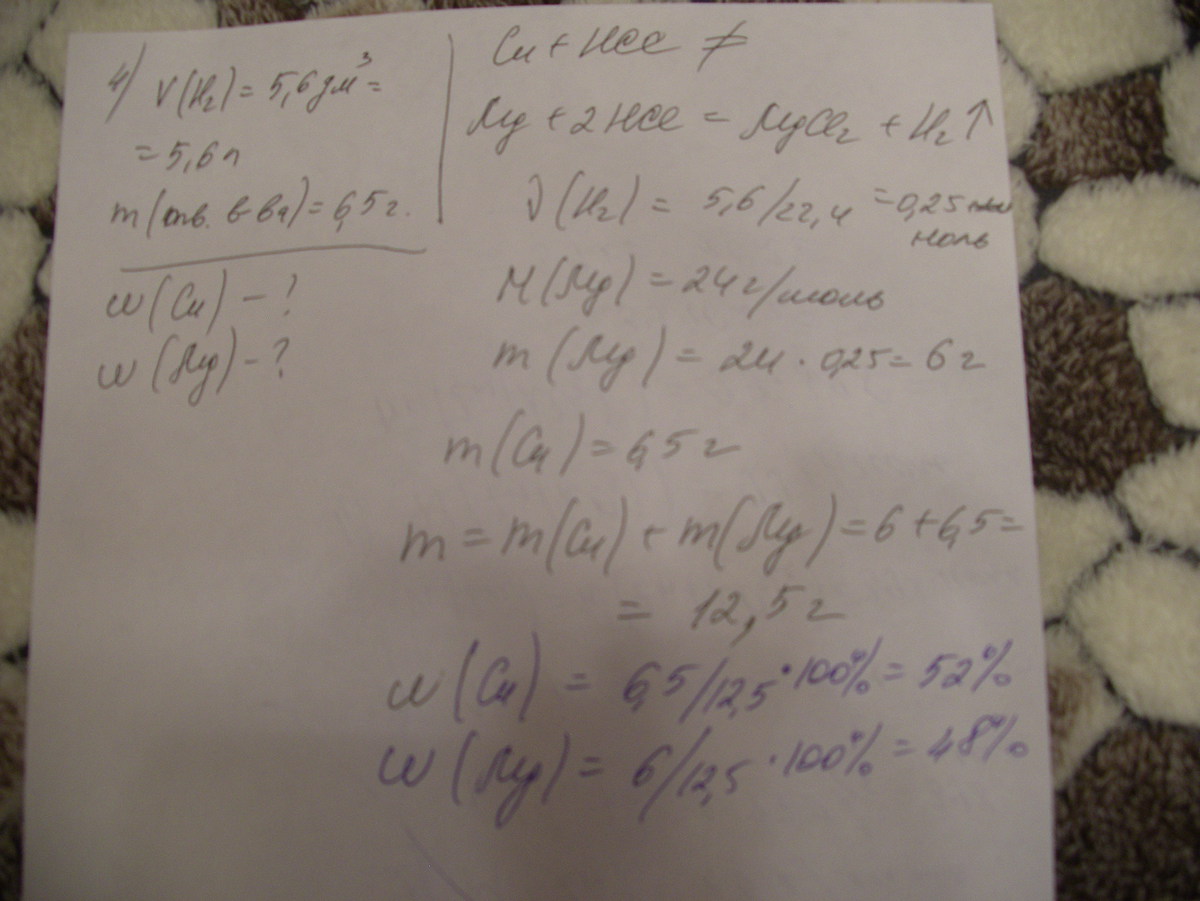 4) V(H₂) = 5,6 дм³ =
= 5,6 л
m(тв. в-ва) = 6,5 г.
w(Cu) - ?
w(Mg) - ?
Cu + HCl ≠
Mg + 2HCl = MgCl₂ + H₂↑
ν(H₂) = 5,6/22,4 = 0,25
моль
M(Mg) = 24 г/моль
m(Mg) = 24 · 0,25 = 6 г
m(Cu) = 6,5 г
m = m(Cu) + m(Mg) = 6 + 6,5 =
= 12,5 г
w(Cu) = 6,5/12,5 · 100% = 52%
w(Mg) = 6/12,5 · 100% = 48%